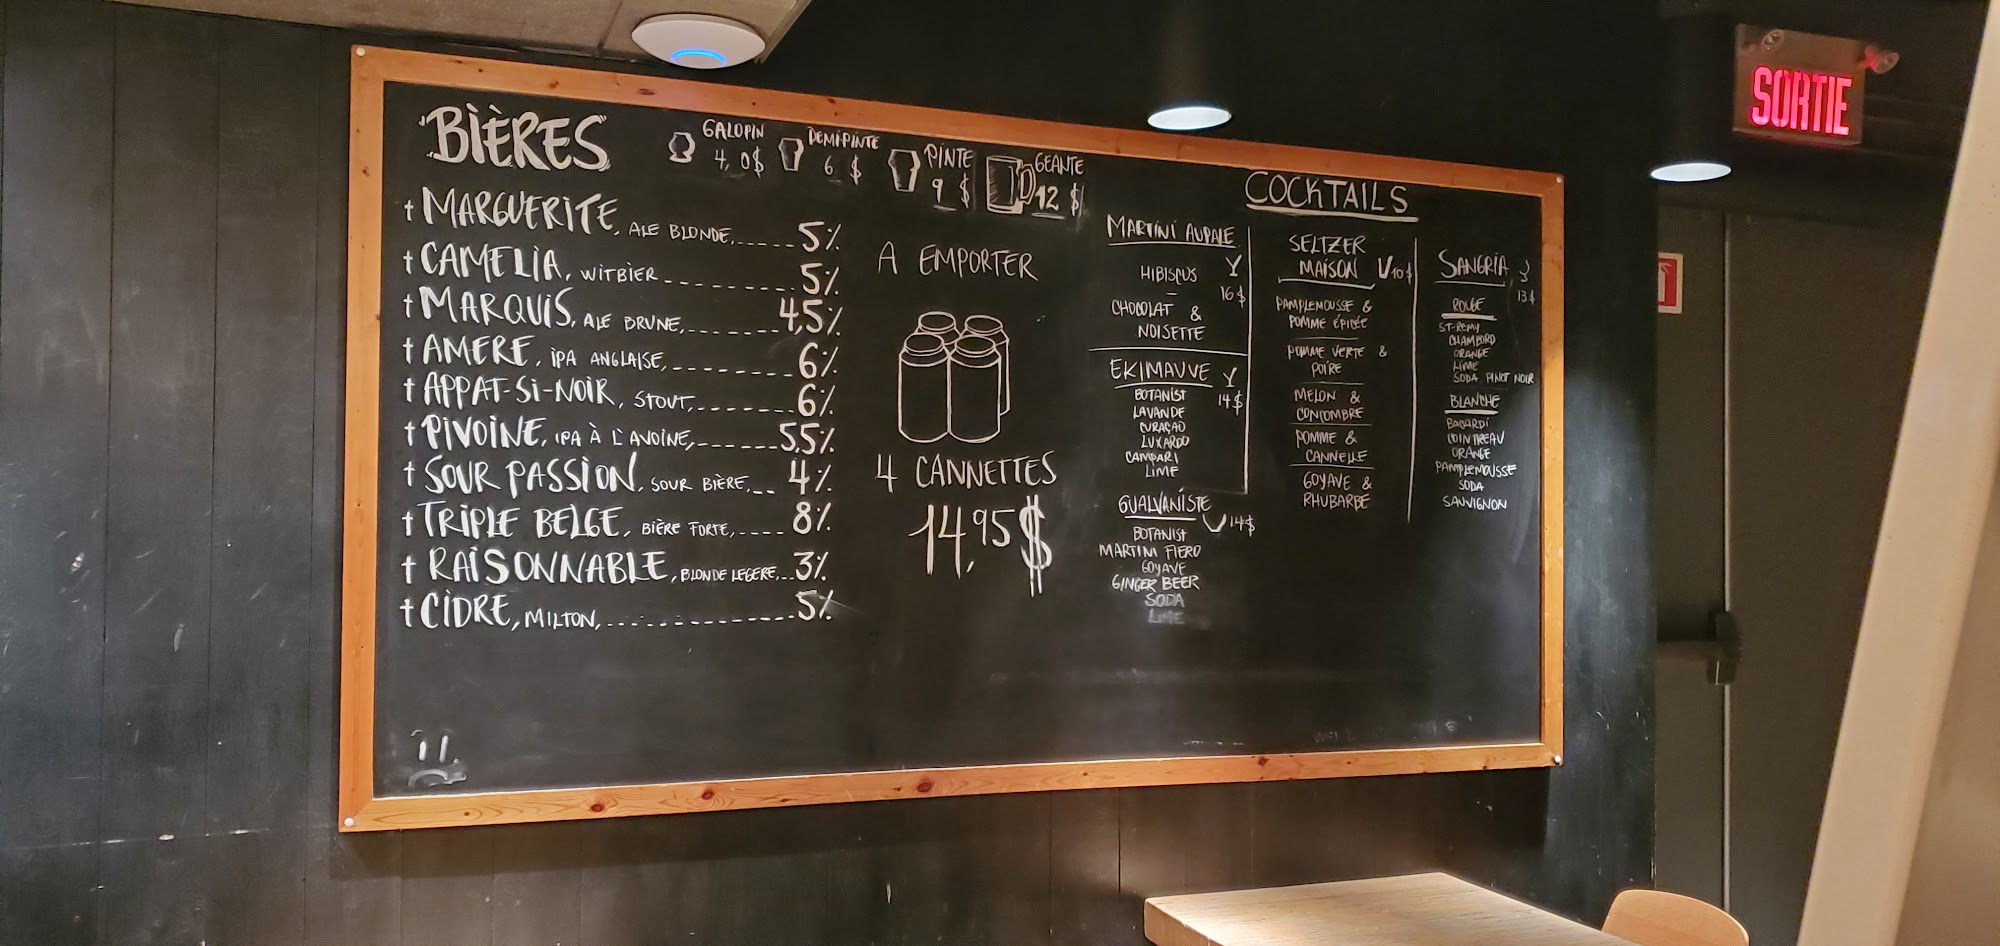 BIÈRES
GALOPIN
4,0$
DEMI-PINTE
6 $
PINTE
9 $
GEANTE
12 $
† MARGUERITE, ALE BLONDE,.....5%
† CAMELIA, WITBIER........5%
† MARQUIS, ALE BRUNE,.......4,5%
† AMERE, IPA ANGLAISE,........6%
† APPAT-SI-NOIR, STOUT,.......6%
† PIVOINE, IPA À L'AVOINE,......5,5%
† SOUR PASSION, SOUR BIÈRE,..4%
† TRIPLE BELGE, BIÈRE FORTE,....8%
† RAISONNABLE, BLONDE LEGERE,..3%
† CIDRE, MILTON,..............5%
A EMPORTER
4 CANNETTES
14,95$
COCKTAILS
MARTINI AUPALE
HIBISCUS
16$
CHOCOLAT &
NOISETTE
EKIMAUVE
14$
BOTANIST
LAVANDE
CURAÇAO
LUXARDO
CAMPARI
LIME
GUALVANISTE
14$
BOTANIST
MARTINI FIERO
GOYAVE
GINGER BEER
SODA
LIME
SELTZER
MAISON 10$
PAMPLEMOUSSE &
POMME ÉPICÉE
POMME VERTE &
POIRE
MELON &
CONCOMBRE
POMME &
CANNELLE
GOYAVE &
RHUBARBE
SANGRIA
13$
ROUGE
ST-REMY
CHAMBORD
ORANGE
LIME
SODA PINOT NOIR
BLANCHE
BACARDI
COINTREAU
ORANGE
PAMPLEMOUSSE
SODA
SAUVIGNON
SORTIE